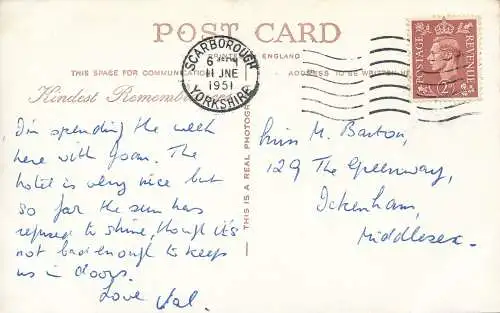 POST CARD
PRINTED IN ENGLAND
THIS SPACE FOR COMMUNICATION
ADDRESS TO BE WRITTEN HERE
Kindest Remembrances
SCARBOROUGH
6
11 JNE
1951
YORKSHIRE
POSTAGE
REVENUE
2D
I'm spending the week
here with Joan. The
hotel is very nice but
so far the sun has
refused to shine, though it's
not bad enough to keep
us in doors.
Love Val.
THIS IS A REAL PHOTOGRAPH
Miss M. Barton,
129 The Greenway,
Ickenham,
Middlesex.